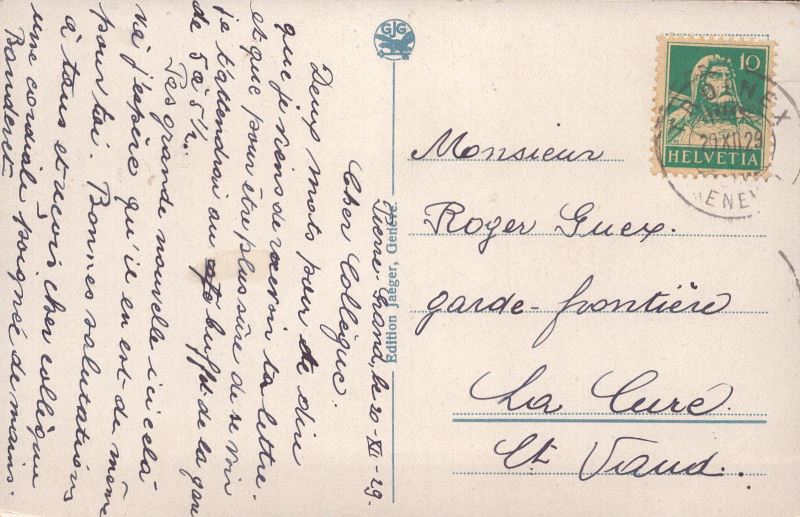 Pierre-Grand, le 20-XII-29.
Cher Collègue.
Deux mots pour te dire
que je viens de recevoir ta lettre.
et que pour être plus sûre de se voir
je t'attendrai au buffet de la gare
de 5 à 5½.
Pas grande nouvelle ici cela
va j'espère qu'il en est de même
pour toi. Bonnes salutations
à tous et reçois cher collègue
une cordiale poignée de mains.
Edition Jaeger, Genève.
GJG
10
HELVETIA
20.XII.29
Monsieur
Roger Guex.
garde-frontière
La Cure.
Ct Vaud.